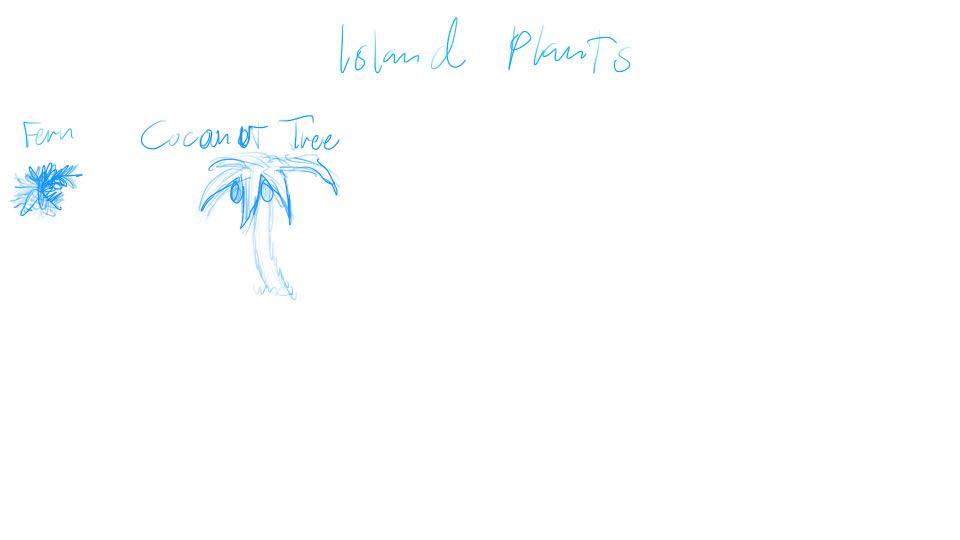 Island Plants
Fern
Cocanut Tree